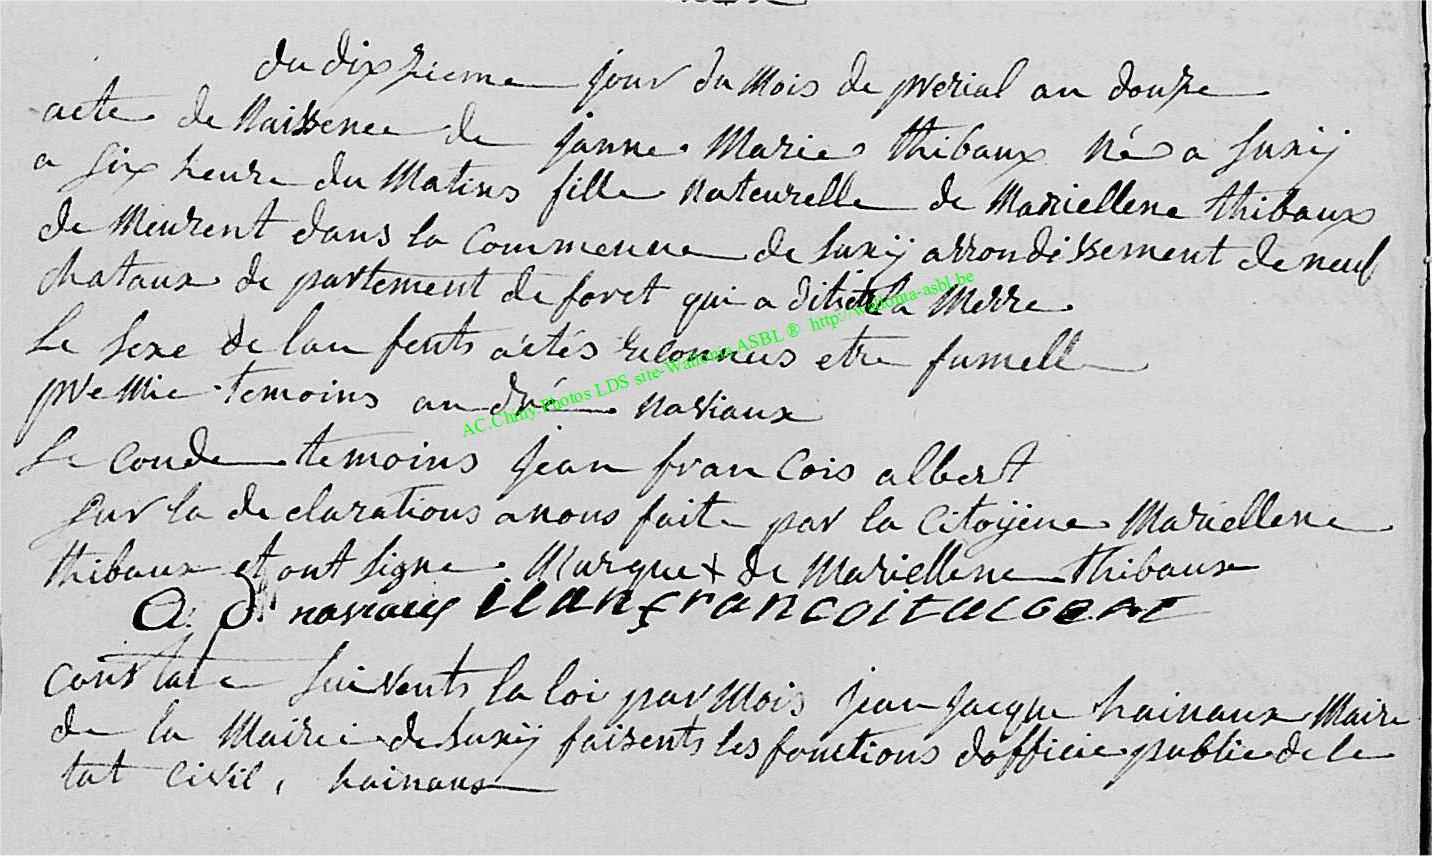 du dixzieme jour du mois de prerial an douze
acte de Naissence de janne Marie thibaux né a Suxÿ
a six heure du Matins fille nateurelle de Mariellene thibaux
de Meurent dans la Commeune de Suxÿ arrondissement de neuf
chataux de partement de foret qui a dit la Merre
le sexe de lan fents a étés reconnus etre fumelle
premie temoins andré naviaux
se conde temoins jean francois albert
sur la de clarations a nous faite par la Citoÿene Mariellene
thibaux et ont signe. Marque + de Mariellene thibaux
A D naviaux
constate suivents la loi par Mois jean jacque hainaux Maire
de la Mairie de Suxÿ faisents les fonctions dofficie public de le
tat civil, hainaux
AC.Chiny-Photos LDS site-Wallonia ASBL ® http://wallonia-asbl.be